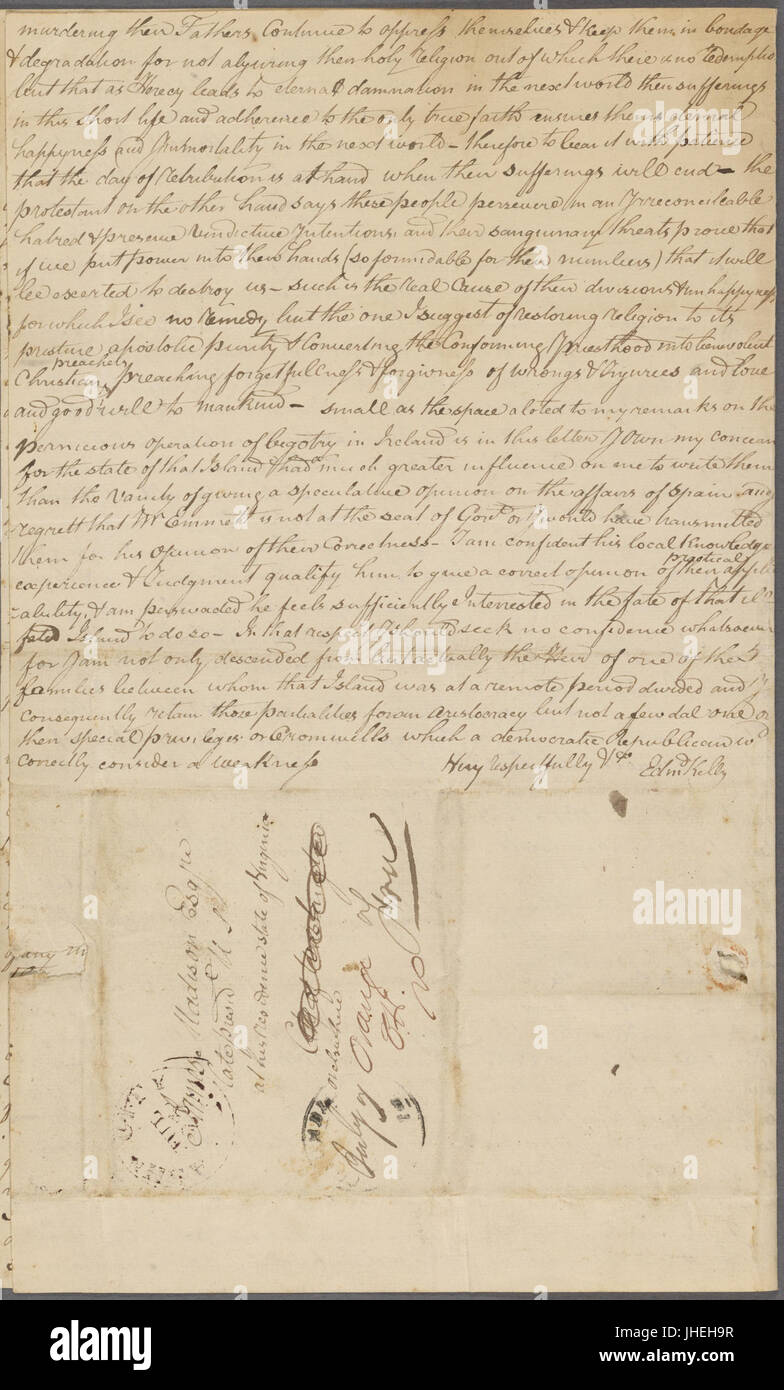 murdering their Fathers Continue to oppress themselves & keep them in bondage
& degradation for not abjuring their holy religion out of which there is no redemptio
but that as Heresy leads to eternal damnation in the next world their sufferings
in this short life and adherence to the only true faith ensures them eternal
happyness and Immortality in the next world – therefore to bear it with patience
that the day of retribution is at hand when their sufferings will end – the
protestant on the other hand says these people persevere in an Irreconcileable
hatred & preserve Vindictive Intentions and their sanguinary threats prove that
if we put power into their hands (so formidable for their numbers) that it will
be exerted to destroy us – such is the real Cause of their divisions & unhappyness
for which I see no remedy but the one I suggest of restoring religion to its
pristine apostolic purity & Converting the Conforming Priesthood into benevolent
preachers
Christian preaching forgetfullness & forgivness of wrongs & Injuries and love
and good will to mankind – small as the space aloted to my remarks on the
pernicious operation of bigotry in Ireland is in this letter I Own my concern
for the state of that Island had a much greater influence on me to write them
than the Vanity of giving a speculative opinion on the affairs of Spain and
regrett that Mr Emmett is not at the seat of Govt or I would have transmitted
them for his Opinion of their Correctness – I am confident his local Knowledge
practical
experience & Judgment qualify him to give a correct opinion of their applic
ability, & am persuaded he feels sufficiently Interested in the fate of that ill
fated Island to do so – In that respect I should seek no confidence whatsoever
for I am not only descended from but actually the Heir of one of the
families between whom that Island was at a remote period divided and
consequently retain those partialities for an Aristocracy but not a feudal one or
their special privileges or Cromwells which a democratic Republican wd
correctly consider a weakness
Very respectfully &c
Edmd Kelly
of any
James Madison Esqre
late presdt U S
at his residence state of Virginia
Orange
Ford
alamy
Image ID: JHEH9R
www.alamy.com